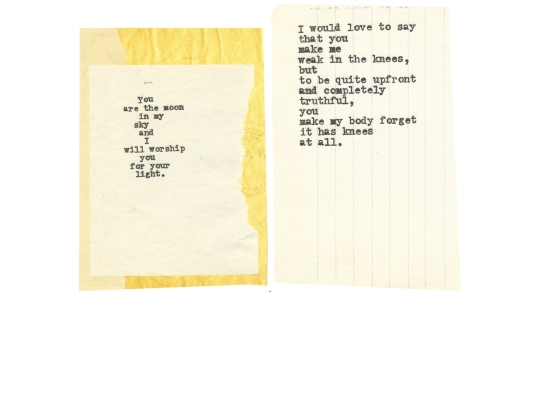 You
are the moon
in my
sky
and
I
will worship
you
for your
light.
I would love to say
that you
make me
weak in the knees,
but
to be quite upfront
and completely
truthful,
you
make my body forget
it has knees
at all.